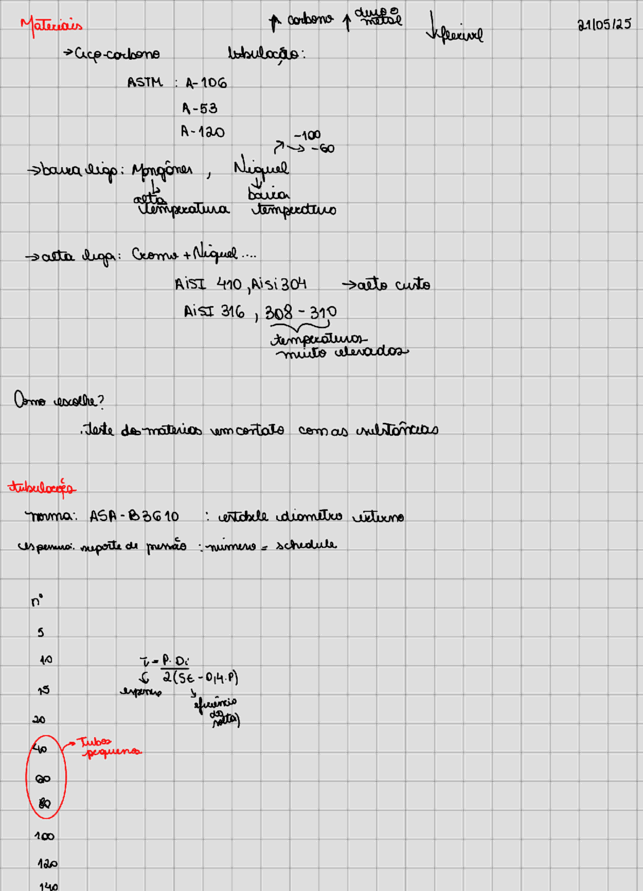 Materiais
↑ carbono ↑ duro o metal ↓ flexível
21/05/25
→ Aço-carbono tubulação:
ASTM : A-106
A-53
A-120
-100
→ -60
→ baixa liga: Mongânes , Níquel
alta temperatura
baixa temperatura
→ alta liga: Cromo + Níquel ....
AiSI 410 , Aisi 304 → alto custo
AiSI 316 , 308 - 310
temperaturas
muito elevadas
Como escolhe?
. teste do materias em contato com as substâncias
tubulação
norma: ASA-B3610 : estabele diâmetro externo
espessura: suporte de pressão : número = schedule
n°
5
10
15
20
40
60
80
100
120
140
Tubos
pequenos
t = P. Di
2(SE - 0,4.P)
espessura
eficiência
da
solta)